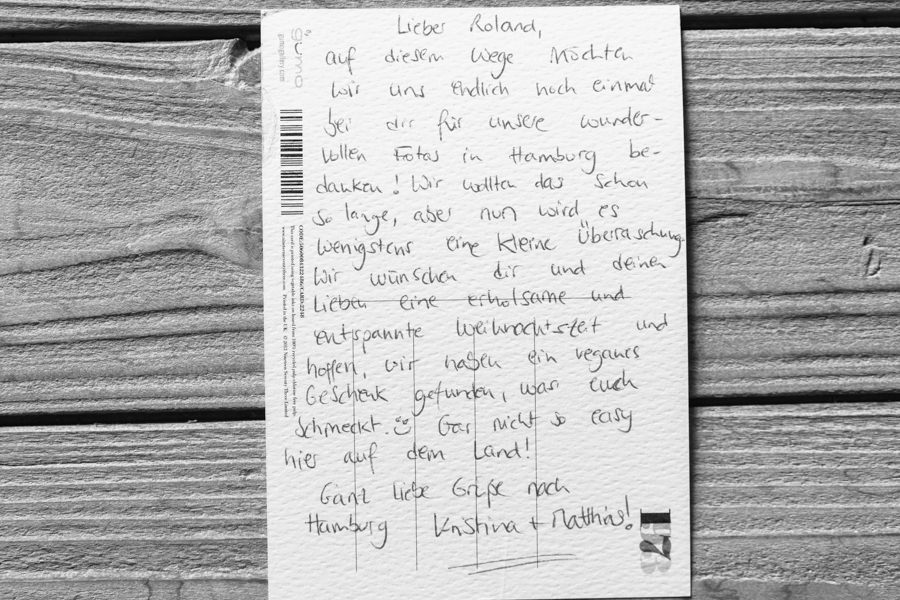 Lieber Roland,
auf diesem Wege möchten
wir uns endlich noch einmal
bei dir für unsere wunder-
vollen Fotos in Hamburg be-
danken! Wir wollten das schon
so lange, aber nun wird es
wenigstens eine kleine Überraschung.
Wir wünschen dir und deinen
Lieben eine erholsame und
entspannte Weihnachtszeit und
hoffen, wir haben ein veganes
Geschenk gefunden, was euch
schmeckt. Gar nicht so easy
hier auf dem Land!
Ganz liebe Grüße nach
Hamburg Kristina + Matthias!
1573